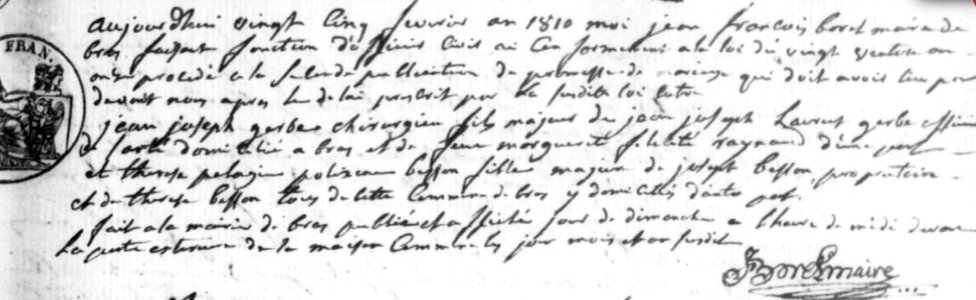 FRAN.
aujourdhui vingt cinq fevrier an 1810 moi jean françois boret maire de
bras faisant fonction d officier civil ai conformement a la loi du vingt ventose an
onze procedé a la seconde publication de promesse de mariage qui doit avoir lieu par
devant nous apres le delai prescrit par la susdite loi entre
jean joseph gerbe chirurgien fils majeur de jean joseph Laurent gerbe officier
de santé domicilié a bras et de feue marguerite felicité raynaud d'une part
et therese pelagie besson fille majeure de joseph besson, proprietaire
et de therese besson tous de cette Commune de bras y domiciliés d'autre part.
fait a la mairie de bras publié et affiché jour de dimanche a l'heure de midi devant
La porte exterieure de la maison Commune les jour mois et an susdit
maire